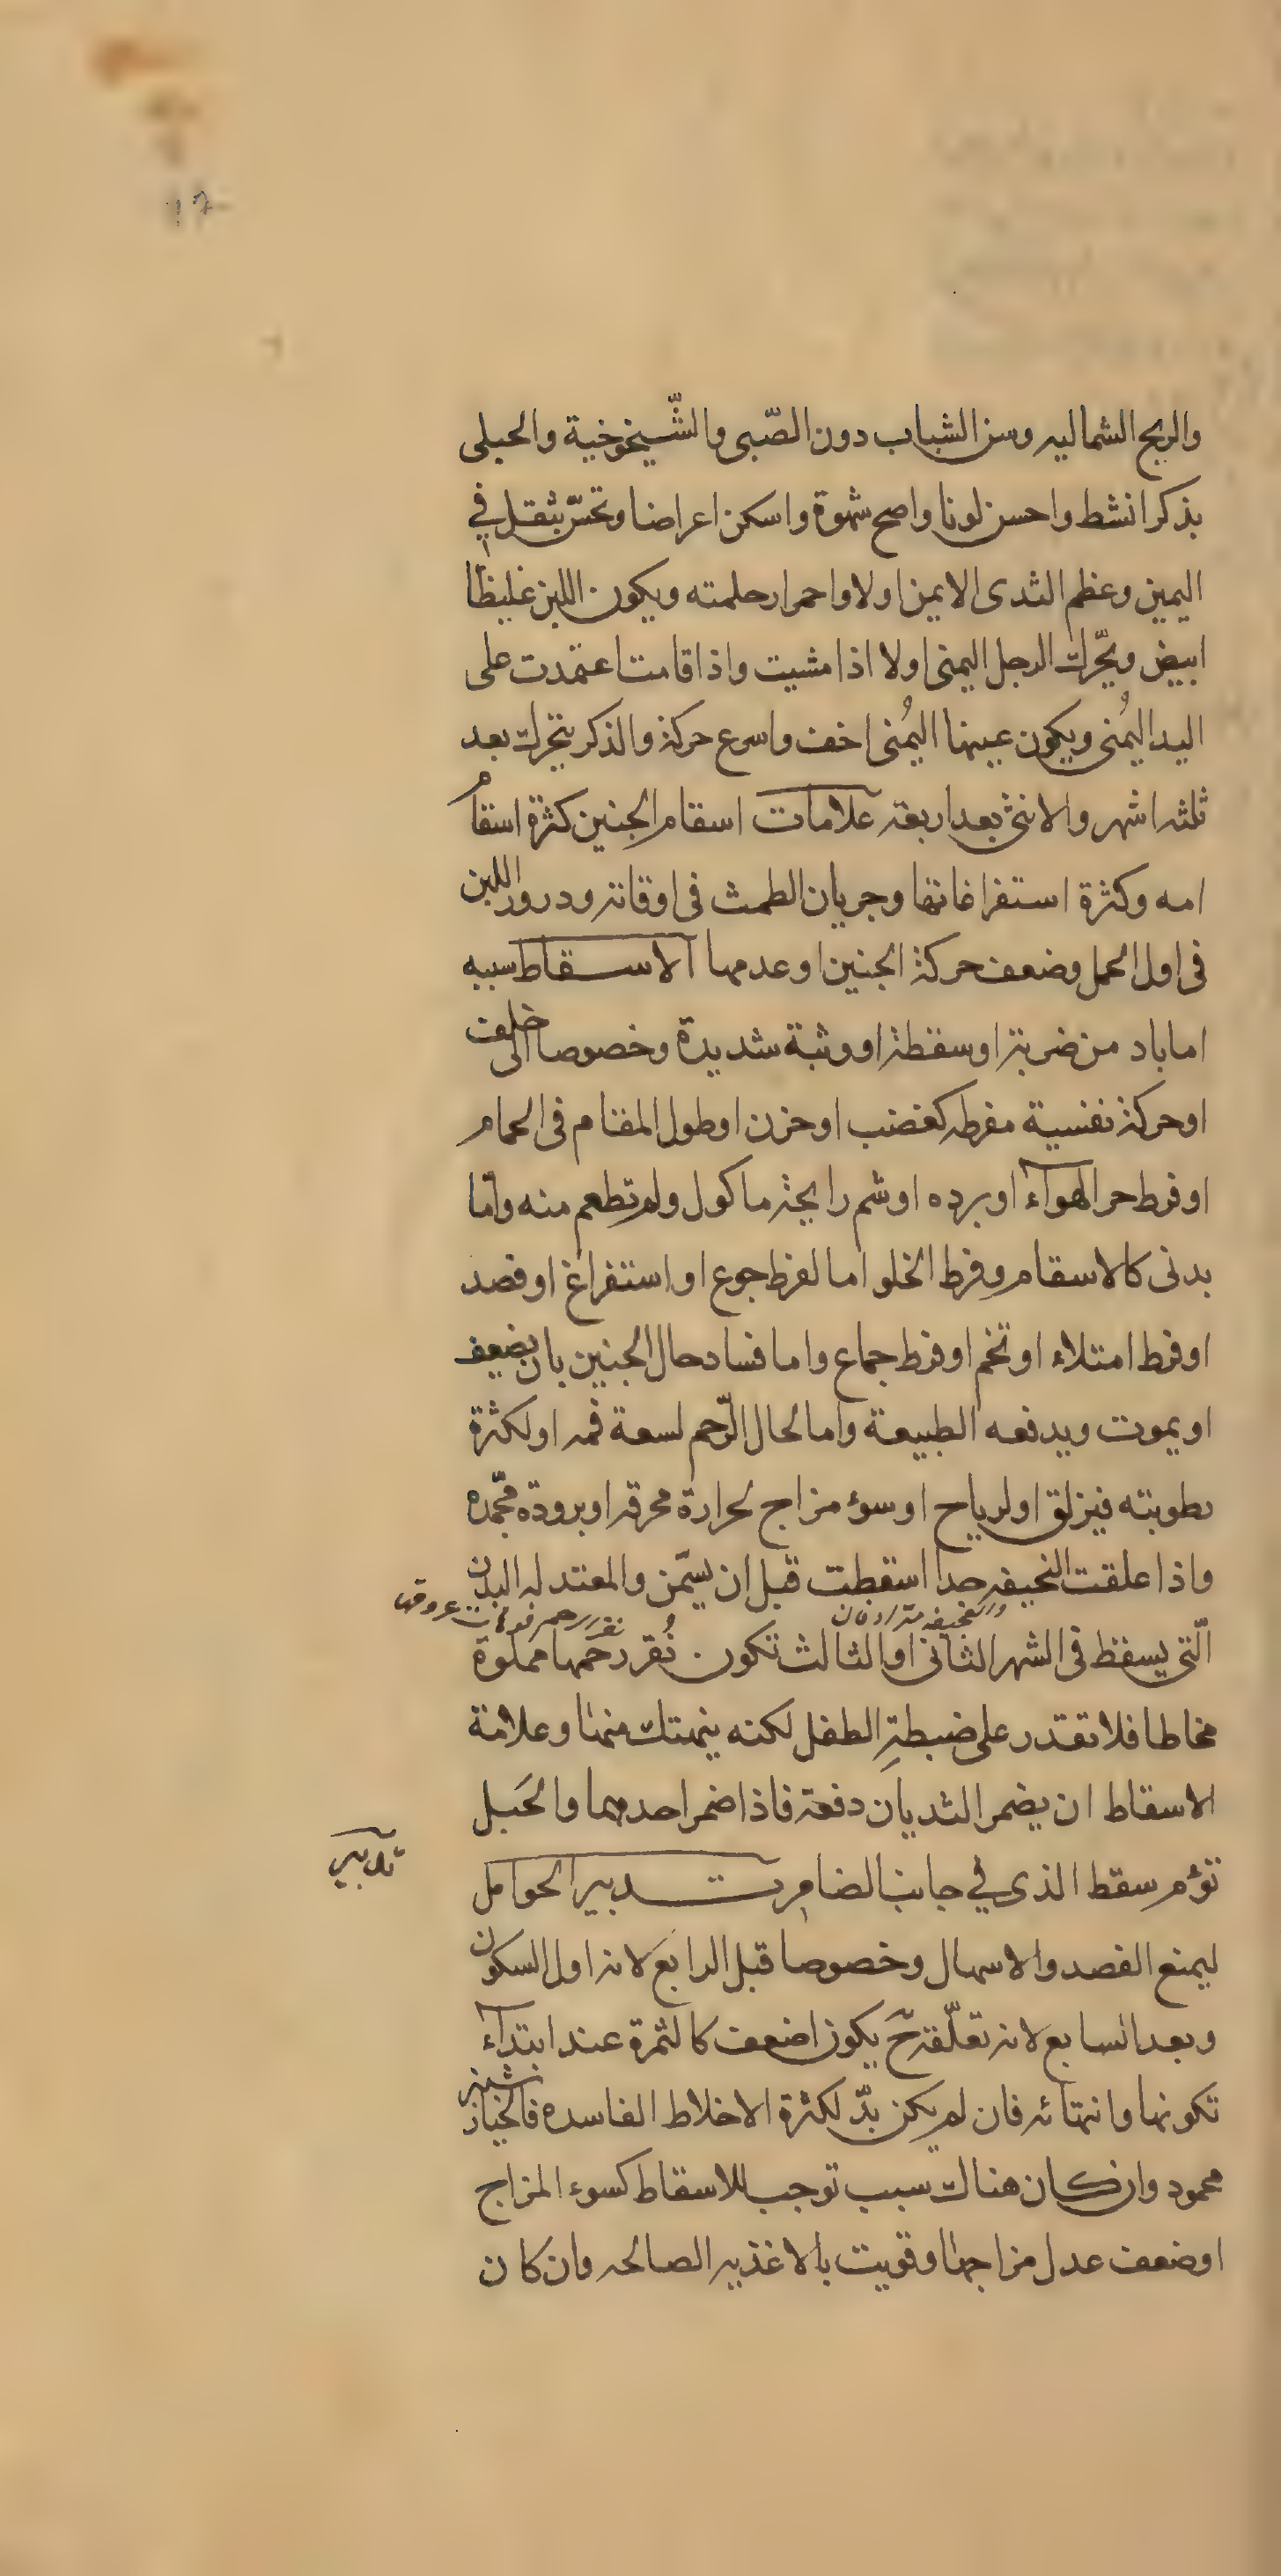 والريح الشماليه وسن الشباب دون الصّبى والشّيخوخية والحبلى
بذكر انشط واحسن لونا واصح شهوة واسكن اعراضا وتحسّ بثقل في
اليمين وعظم الثدى الايمن اولا واحمرار حلمته ويكون اللبن غليظا
ابيض ويحّرك الرجل اليمنى اولا اذا مشيت واذا قامت اعتمدت على
اليد اليُمنى ويكون عينها اليُمنى اخف واسرع حركة والذكر يتحرك بعد
ثلثه اشهر والانثى بعد اربعة علامات اسقام الجنين كثرة اسقام
امه وكثرة استفراغاتها وجريان الطمث فى اوقاته ودرور اللبن
فى اول الحمل وضعف حركة الجنين او عدمها الاسقاط سببه
اما باد من ضربة او سقطة او وثبة شديدة وخصوصا الى خلف
او حركة نفسية مفرطه كغضب او حزن او طول المقام فى الحمام
او فرط حر الهوآء او برده او شم رايحة ماكول ولم تطعم منه واما
بدنى كالاسقام وفرط الخلو اما لفرط جوع او استفراغ او فصد
او فرط امتلاء او تخم او فرط جماع واما فساد حال الجنين بان يضعف
او يموت ويدفعه الطبيعة واما لحال الرّحم لسعة فمه او لكثرة
رطوبته فيزلق او لرياح او سوء مزاج لحرارة محرقه او برودة مجّمده
واذا علقت النحيفه جدا اسقطت قبل ان يسّمن والمعتدله البدن
الّتى يسقط فى الشهر الثانى او الثالث تكون نُقر رحمها مملوة
مخاطا فلا تقدر على ضبطة الطفل لكنه ينهتك منها وعلامة
الاسقاط ان يضمر الثديان دفعة فاذا ضمر احدهما والحَبل
توٴم سقط الذى في جانب الضامر تدبير الحوامل
تدبير
ليمنع الفصد والاسهال وخصوصا قبل الرابع لانه اول السكون
وبعد السابع لانه تعلّقه حّ يكون اضعف كالثمرة عند ابتدآء
تكونها وانتهائه فان لم يكن بدّ لكثرة الاخلاط الفاسده فالخيار شنبر
محمود وان كان هناك سبب توجب للاسقاط كسوء المزاج
او ضعف عدل مزاجها وقويت بالاغذيه الصالحه وان كان